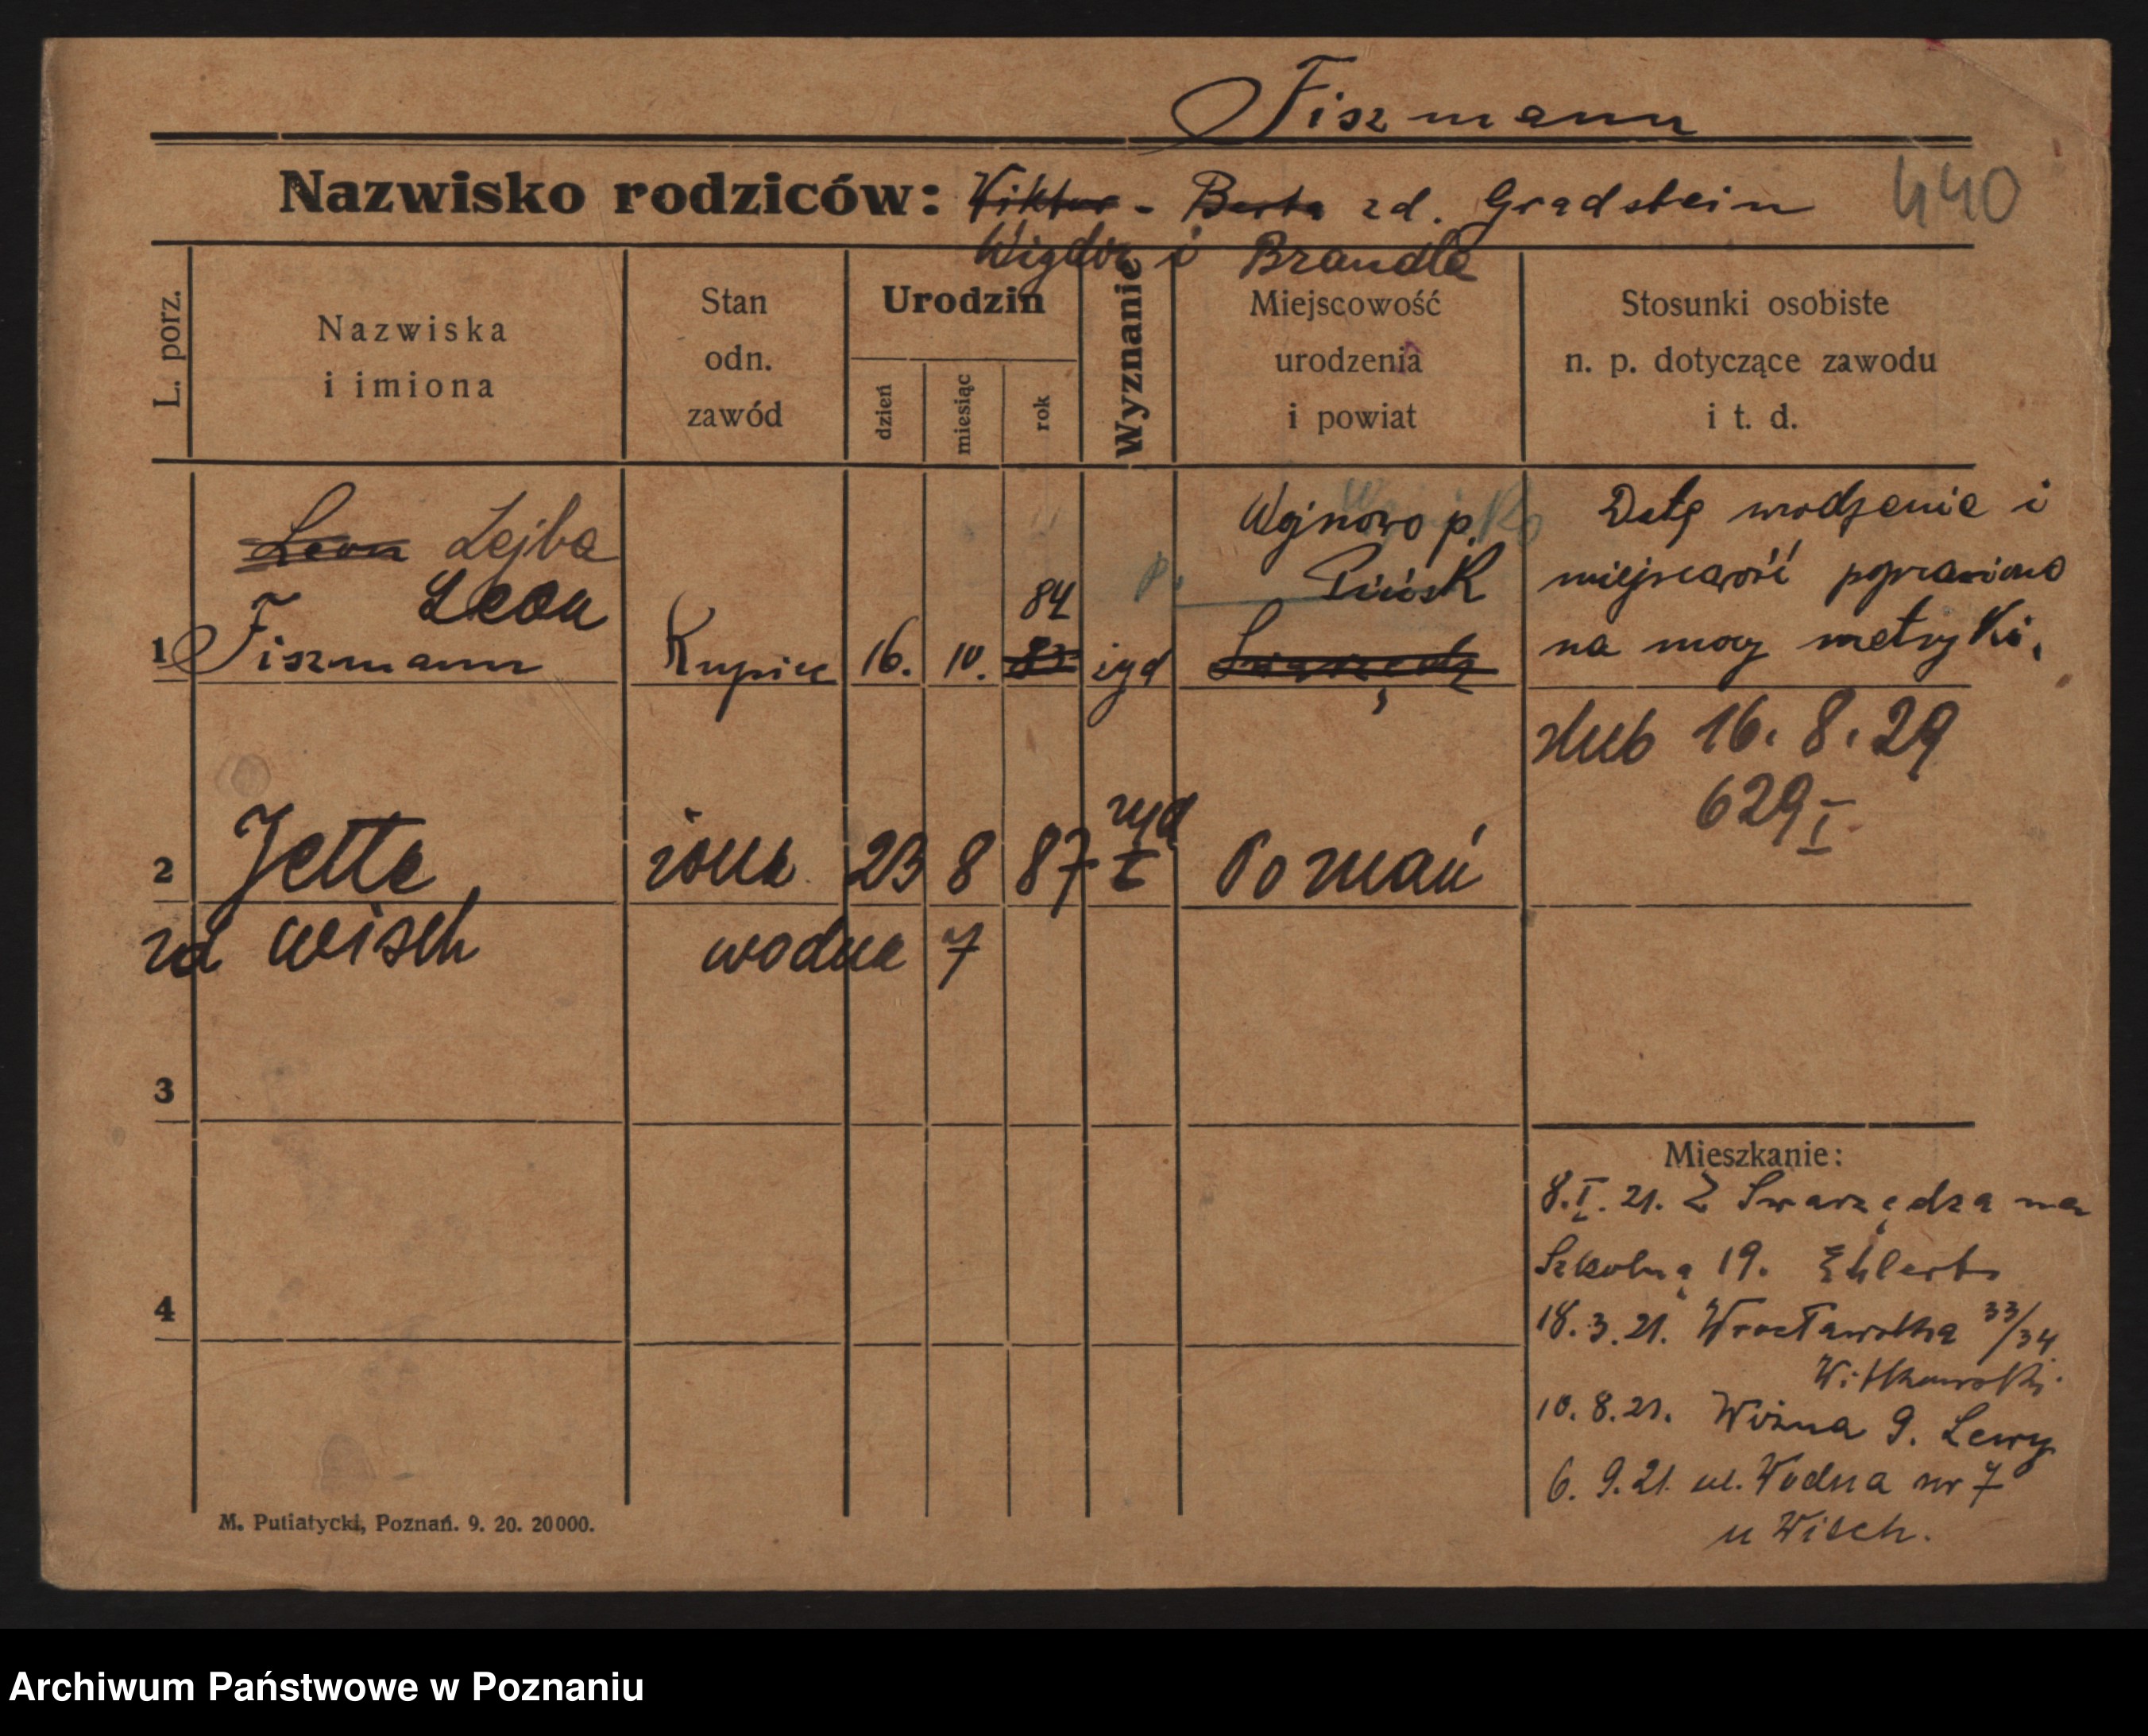 Fiszmann
Nazwisko rodziców: Wiktor - Berta zd. Gradstein
440
Wigdor i Brandla
L. porz.
Nazwiska
i imiona
Stan
odn.
zawód
Urodzin
dzień
miesiąc
rok
Wyznanie
Miejscowość
urodzenia
i powiat
Stosunki osobiste
n. p. dotyczące zawodu
i t. d.
Leon Lejba
Leon
1 Fiszmann
Kupiec
16.
10.
84
83
żyd
Wojnowo p.
Pińsk
Datę urodzenia i
miejscowość poprawiono
na mocy metryki.
ślub 16. 8. 29
629 I
2 Jette
żona
23
8
87
żyd
Poznań
zd Wisch
Wodna 7
3
4
Mieszkanie:
8. I. 21. Z Swarzędza na
Szkolną 19. Ehlert
18. 3. 21. Wrocławska 33/34
Witkowski.
10. 8. 21. Woźna 9. Lewy
6. 9. 21 ul. Wodna nr 7
u Wisch.
M. Putiatycki, Poznań. 9. 20. 20000.
Archiwum Państwowe w Poznaniu